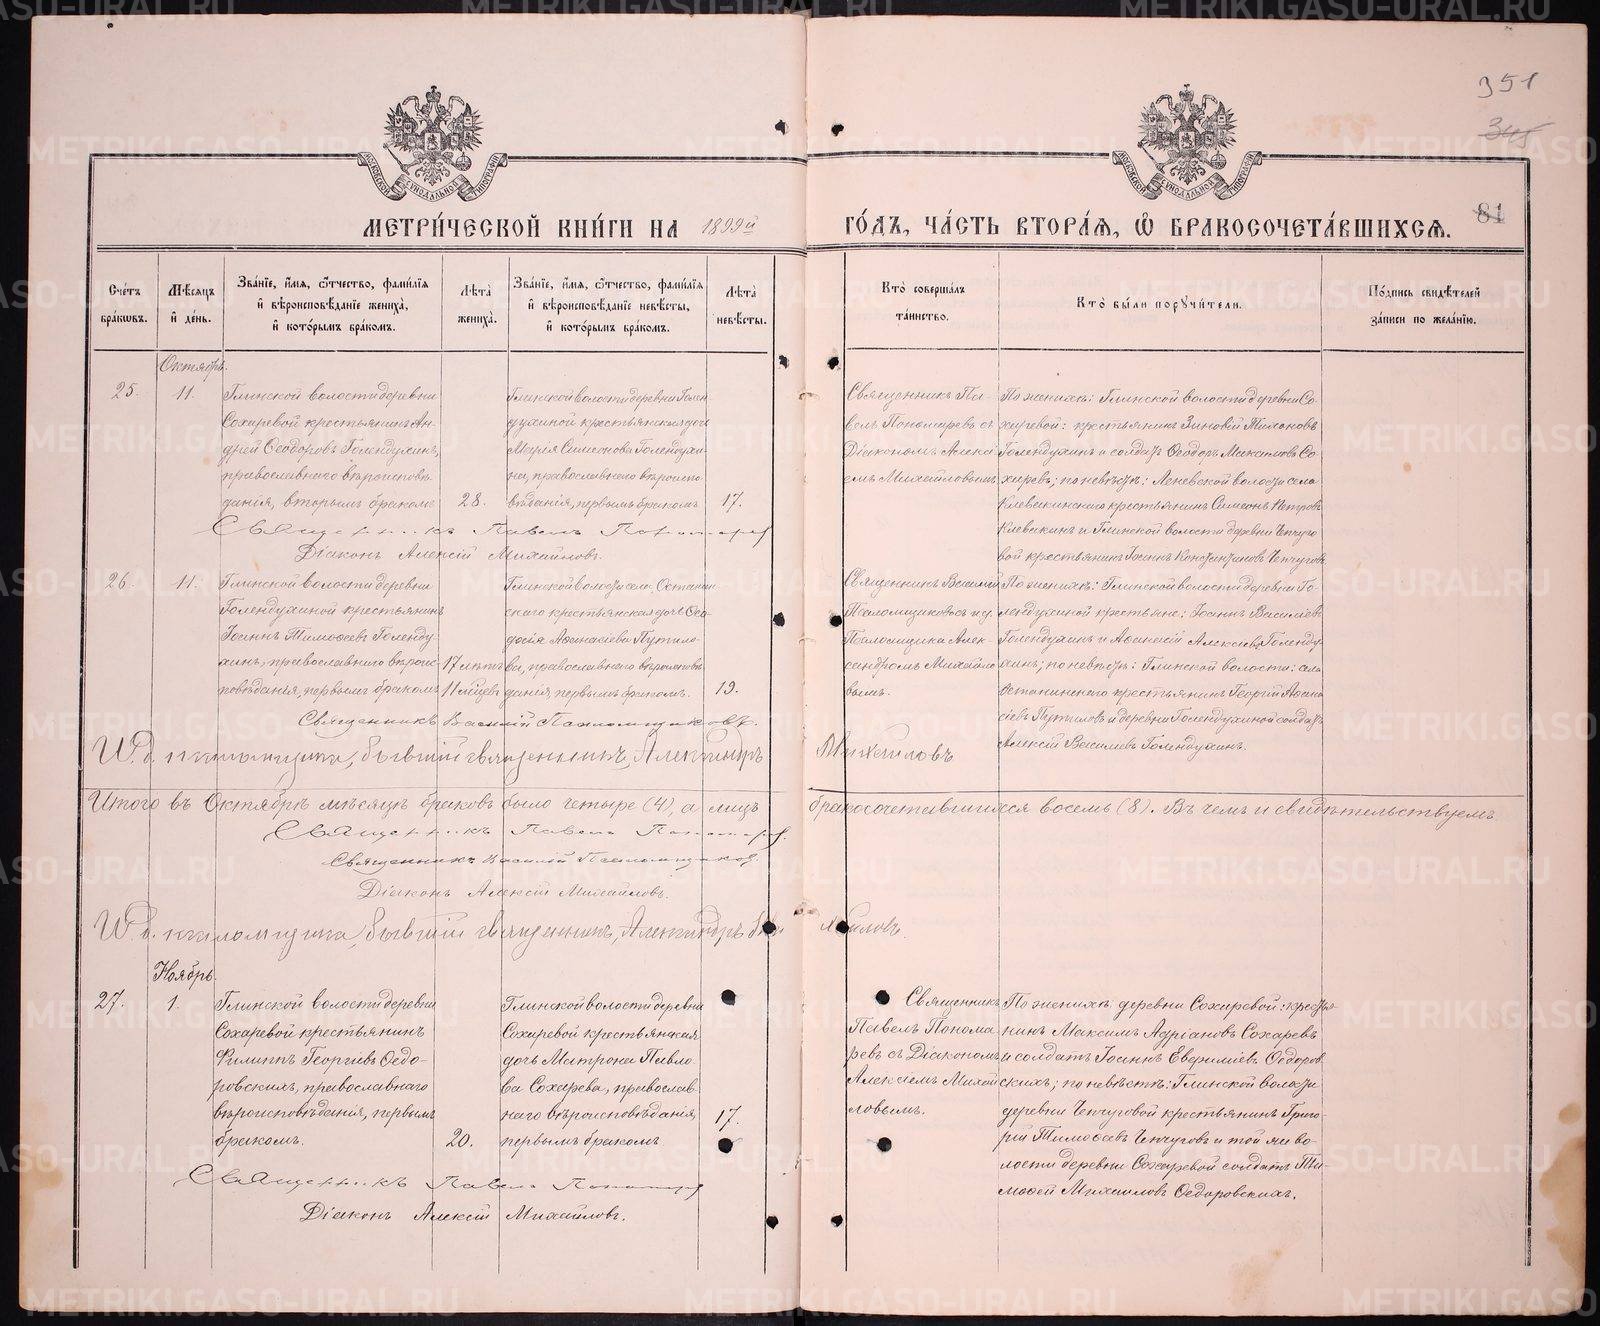 351
345
МОСКОВСКОЙ СУНОДАЛЬНОЙ ТИПОГРАФІИ
МОСКОВСКОЙ СУНОДАЛЬНОЙ ТИПОГРАФІИ
МЕТРИ́ЧЕСКОЙ КНИ́ГИ НА 1899й ГО́ДЪ, ЧА́СТЬ ВТОРА́Я, Ѡ БРАКОСОЧЕТА́ВШИХСЯ.
81
Сче́тъ бра́кѡвъ.
Мѣ́сяцъ и҆ де́нь.
Зва́нїе, и҆́мя, ѻ҆́тчество, фами́лїя и҆ вѣроисповѣ́данїе жениха̀, и҆ кото́рымъ бра́комъ.
Лѣ́та жениха̀.
Зва́нїе, и҆́мя, ѻ҆́тчество, фами́лїя и҆ вѣроисповѣ́данїе невѣ́сты, и҆ кото́рымъ бра́комъ.
Лѣ́та невѣ́сты.
Кто̀ соверша́лъ та́инство.
Кто̀ бы́ли поручи́тели.
По́дпись свидѣ́телей за́писи по жела́нїю.
Октябрь.
25.
11.
Глинской волости деревни
Сохаревой крестьянинъ Ан-
дрей Ѳеодоровъ Голендухинъ,
православнаго вѣроисповѣ-
данія, вторымъ бракомъ
28.
Глинской волости деревни Голен-
духиной крестьянская дочь
Марія Симеонова Голендухи-
на, православнаго вѣроиспо-
вѣданія, первымъ бракомъ
17.
Священникъ Па-
велъ Пономаревъ съ
Діакономъ Алексі-
емъ Михайловымъ
По женихѣ: Глинской волости деревни Со-
харевой: крестьянинъ Зиновій Тихоновъ
Голендухинъ и солдатъ Ѳеодоръ Максимовъ Со-
харевъ; по невѣстѣ: Леневской волости села
Клевакинскаго крестьянинъ Симеонъ Петровъ
Клевакинъ и Глинской волости деревни Чепчуго-
вой крестьянинъ Іоаннъ Константиновъ Чепчуговъ
Священникъ Павелъ Пономаревъ
Діаконъ Алексій Михайловъ.
26.
11.
Глинской волости деревни
Голендухиной крестьянинъ
Іоаннъ Тимоѳеевъ Голенду-
хинъ, православнаго вѣроис-
повѣданія, первымъ бракомъ
17 лѣтъ
11 мѣсцевъ
Глинской волости села Останин-
скаго крестьянская дочь Ѳео-
досія Аѳанасіева Путило-
ва, православнаго вѣроисповѣ-
данія первымъ бракомъ.
19.
Священникъ Василій
Паломщиковъ съ и. д.
Псаломщика Алек-
сандромъ Михайло-
вымъ.
По женихѣ: Глинской волости деревни Го-
лендухиной крестьяне: Іоаннъ Василіевъ
Голендухинъ и Аѳанасій Алексіевъ Голенду-
хинъ; по невѣстѣ: Глинской волости: села
Останинскаго крестьянинъ Георгій Аѳана-
сіевъ Путиловъ и деревни Голендухиной солдатъ
Алексій Василіевъ Голендухинъ.
Священникъ Василій Паломщиковъ.
И. д. псаломщика, бывшій священникъ, Александръ Михайловъ
Итого въ Октябрѣ мѣсяцѣ браковъ было четыре (4), а лицъ бракосочетавшихся восемь (8). Въ чемъ и свидѣтельствуемъ
Священникъ Павелъ Пономаревъ.
Священникъ Василій Паломщиковъ.
Діаконъ Алексій Михайловъ.
И. д. псаломщика, бывшій священникъ, Александръ Михайловъ.
Ноябрь.
27.
1.
Глинской волости деревни
Сохаревой крестьянинъ
Филиппъ Георгіевъ Ѳедо-
ровскихъ, православнаго
вѣроисповѣданія, первымъ
бракомъ.
20.
Глинской волости деревни
Сохаревой крестьянская
дочь Матрона Павло-
ва Сохарева, православ-
наго вѣроисповѣданія,
первымъ бракомъ
17.
Священникъ
Павелъ Понома-
ревъ съ Діакономъ
Алексіемъ Михай-
ловымъ.
По женихѣ: деревни Сохаревой: крестья-
нинъ Максимъ Адріановъ Сохаревъ
и солдатъ Іоаннъ Евфиміевъ Ѳедоров-
скихъ; по невѣстѣ: Глинской волости
деревни Чепчуговой крестьянинъ Григо-
рій Тимоѳеевъ Чепчуговъ и той же во-
лости деревни Сохаревой солдатъ Ти-
моѳей Михаиловъ Ѳедоровскихъ.
Священникъ Павелъ Пономаревъ
Діаконъ Алексій Михайловъ.
METRIKI.GASO-URAL.RU